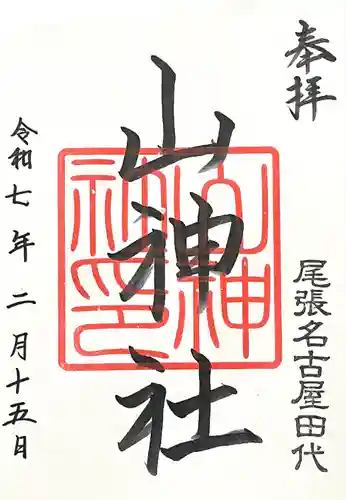 奉拝
尾張名古屋田代
山神社
山神社印
令和七年二月十五日